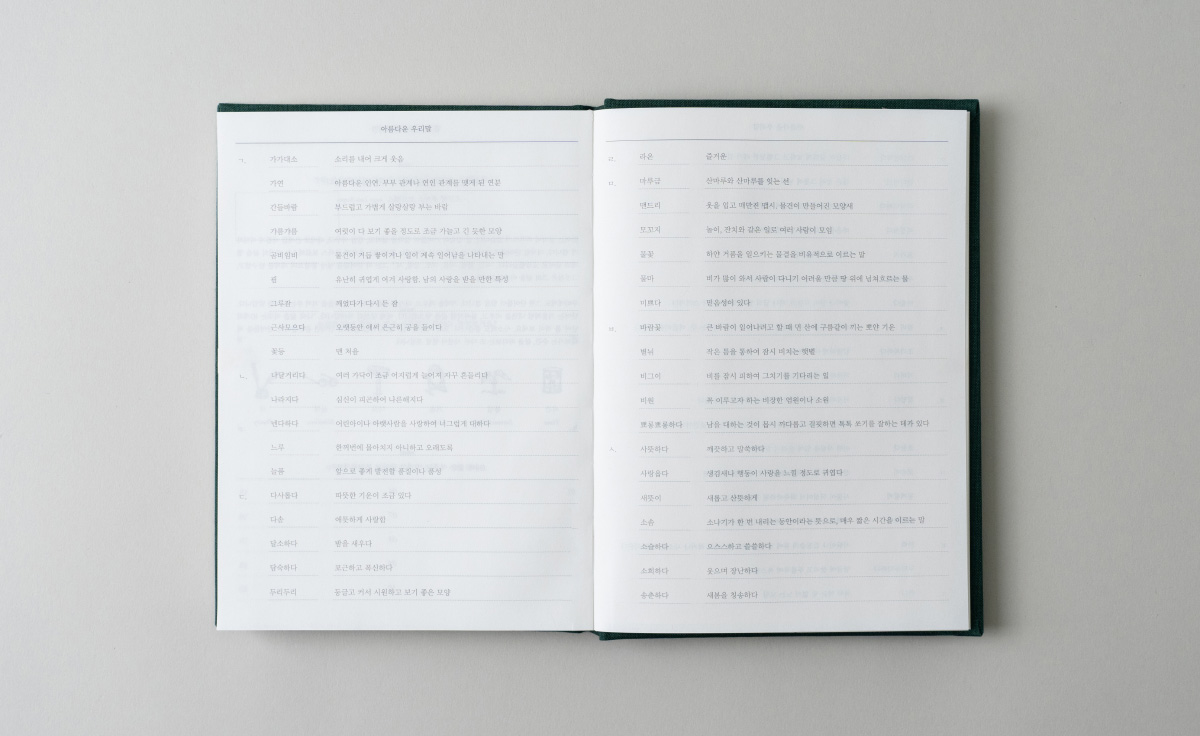 아름다운 우리말
ㄱ. 가가대소 소리를 내어 크게 웃음
가연 아름다운 인연. 부부 관계나 연인 관계를 맺게 된 연분
건들바람 부드럽고 가볍게 살랑살랑 부는 바람
갸름갸름 여럿이 다 보기 좋을 정도로 조금 가늘고 긴 듯한 모양
곰비임비 물건이 거듭 쌓이거나 일이 계속 일어남을 나타내는 말
굄 유난히 귀엽게 여겨 사랑함. 남의 사랑을 받을 만한 특성
그루잠 깨었다가 다시 든 잠
근사모으다 오랫동안 애써 은근히 공을 들이다
꽃등 맨 처음
ㄴ. 너덜거리다 여러 가닥이 조금 어지럽게 늘어져 자꾸 흔들리다
나라지다 심신이 피곤하여 나른해지다
넨다하다 어린아이나 아랫사람을 사랑하여 너그럽게 대하다
느루 한꺼번에 몰아치지 아니하고 오래도록
늘품 앞으로 좋게 발전할 품질이나 품성
ㄷ. 다사롭다 따뜻한 기운이 조금 있다
다솜 애틋하게 사랑함
달소하다 밤을 새우다
담숙하다 포근하고 폭신하다
두리두리 둥글고 커서 시원하고 보기 좋은 모양
ㄹ. 라온 즐거운
ㅁ. 마루금 산마루와 산마루를 잇는 선
맨드리 옷을 입고 매만진 맵시. 물건이 만들어진 모양새
모꼬지 놀이, 잔치와 같은 일로 여러 사람이 모임
물꽃 하얀 거품을 일으키는 물결을 비유적으로 이르는 말
물마 비가 많이 와서 사람이 다니기 어려울 만큼 땅 위에 넘쳐흐르는 물
미쁘다 믿음성이 있다
ㅂ. 바람꽃 큰 바람이 일어나려고 할 때 먼 산에 구름같이 끼는 뽀얀 기운
볕뉘 작은 틈을 통하여 잠시 비치는 햇볕
비그이 비를 잠시 피하여 그치기를 기다리는 일
비원 꼭 이루고자 하는 비장한 염원이나 소원
뾰롱뾰롱하다 남을 대하는 것이 몹시 까다롭고 걸핏하면 톡톡 쏘기를 잘하는 데가 있다
ㅅ. 사뜻하다 깨끗하고 말쑥하다
사랑옵다 생김새나 행동이 사랑을 느낄 정도로 귀엽다
새뜻이 새롭고 산뜻하게
소솜 소나기가 한 번 내리는 동안이라는 뜻으로, 매우 짧은 시간을 이르는 말
소슬하다 으스스하고 쓸쓸하다
소희하다 웃으며 장난하다
송춘하다 새봄을 칭송하다